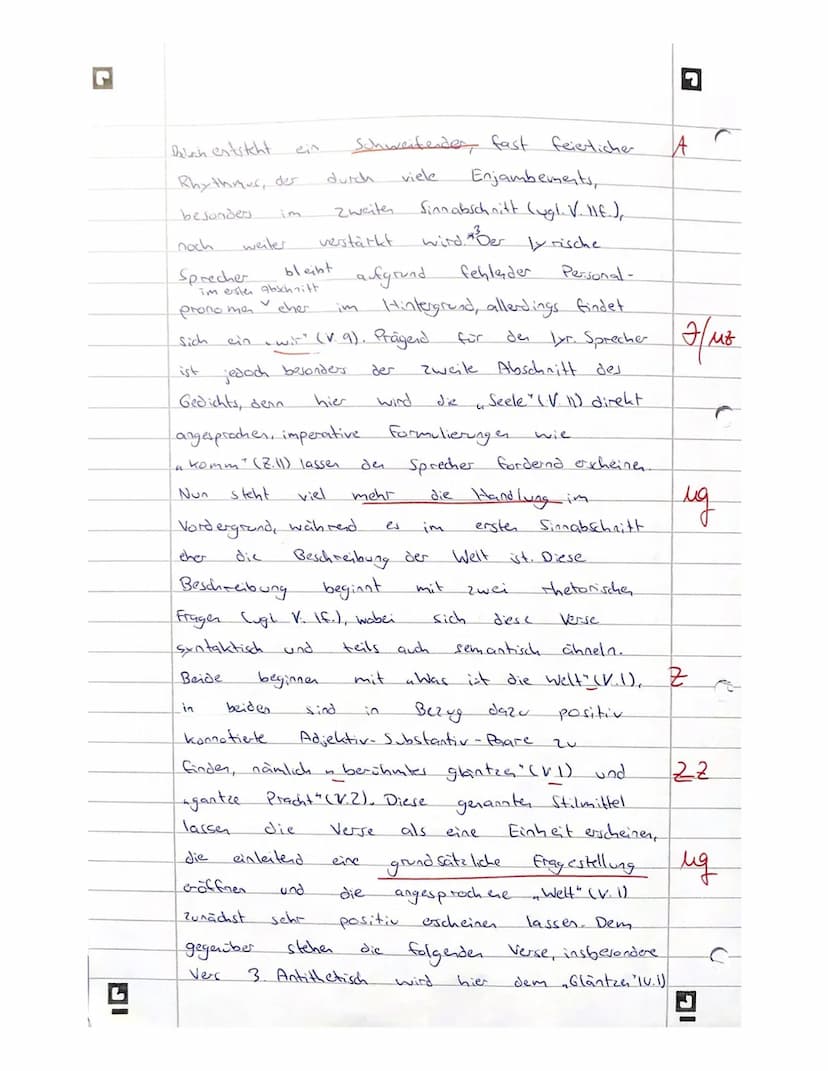 entsteht ein Schweifender, fast feierlicher A
Rhythmus, der durch viele Enjambements,
besonders im zweiten Sinnabschnitt (vgl. V. 11f.),
noch weiter verstärkt wird. *3 Der lyrische
Sprecher bleibt aufgrund fehlender Personal-
im ersten Abschnitt
pronomen eher im Hintergrund, allerdings findet
sich ein „wir" (V. 9). Prägend für den lyr. Sprecher
ist jedoch besonders der zweite Abschnitt des
Gedichts, denn hier wird die „Seele" (V. 11) direkt
angesprochen, imperative Formulierungen wie
„komm" (Z. 11) lassen den Sprecher fordernd erscheinen.
Nun steht viel mehr die Handlung im ug
Vordergrund, während es im ersten Sinnabschnitt
eher die Beschreibung der Welt ist. Diese
Beschreibung beginnt mit zwei rhetorischen
Fragen (vgl. V. 1f.), wobei sich diese Verse
syntaktisch und teils auch semantisch ähneln.
Beide beginnen mit „Was ist die Welt" (V. 1), Z
in beiden sind in Bezug dazu positiv
konnotierte Adjektiv-Substantiv-Paare zu
finden, nämlich „berühmtes gläntzen" (V 1) und ZZ
„gantze Pracht" (V. 2). Diese genannten Stilmittel
lassen die Verse als eine Einheit erscheinen,
die einleitend eine grundsätzliche Fragestellung ug
eröffnen und die angesprochene „Welt" (V. 1)
zunächst sehr positiv erscheinen lassen. Dem
gegenüber stehen die folgenden Verse, insbesondere
Vers 3. Antithetisch wird hier dem „Gläntzen" (V. 1)